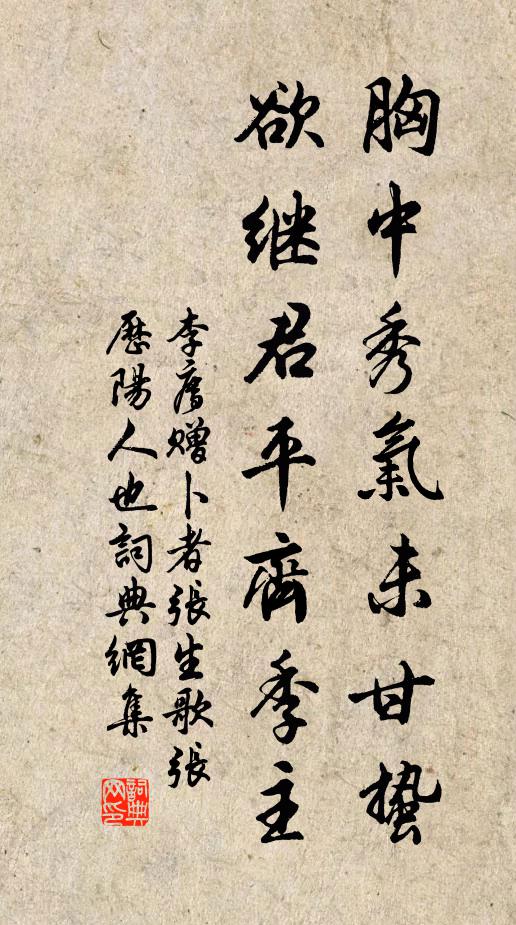 胸中秀氣未甘蟄
欲继君平齊季主
李廌赠卜者張生歌張
歷陽人也詞典網集
詞典
网印